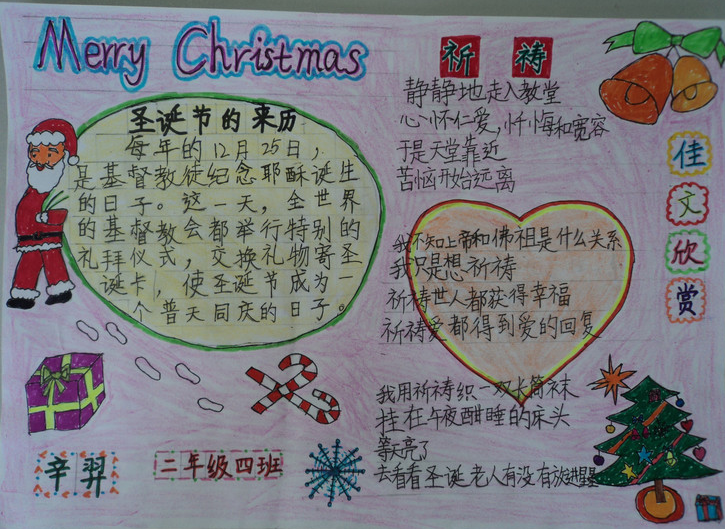 Merry Christmas
圣诞节的来历
每年的12月25日，
是基督教徒纪念耶酥诞生
的日子。这一天，全世界
的基督教会都举行特别的
礼拜仪式，交换礼物寄圣
诞卡，使圣诞节成为一
个普天同庆的日子。
祈祷
静静地走入教堂
心怀仁爱，忏悔和宽容
于是天堂靠近
苦恼开始远离
我不知上帝和佛祖是什么关系
我只是想祈祷
祈祷世人都获得幸福
祈祷爱都得到爱的回复
我用祈祷织一双长筒袜
挂在午夜酣睡的床头
等天亮了
去看看圣诞老人有没有放进星星
佳文欣赏
辛羿
二年级四班